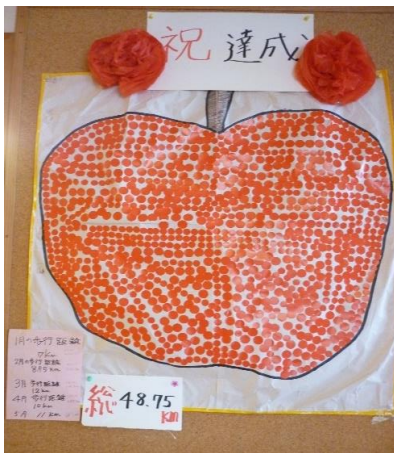 祝 達成
1月の歩行距離
0km
2月の歩行距離
3月 歩行距離
12km
4月 歩行距離
10km
5月 11km
総 48.75
KM